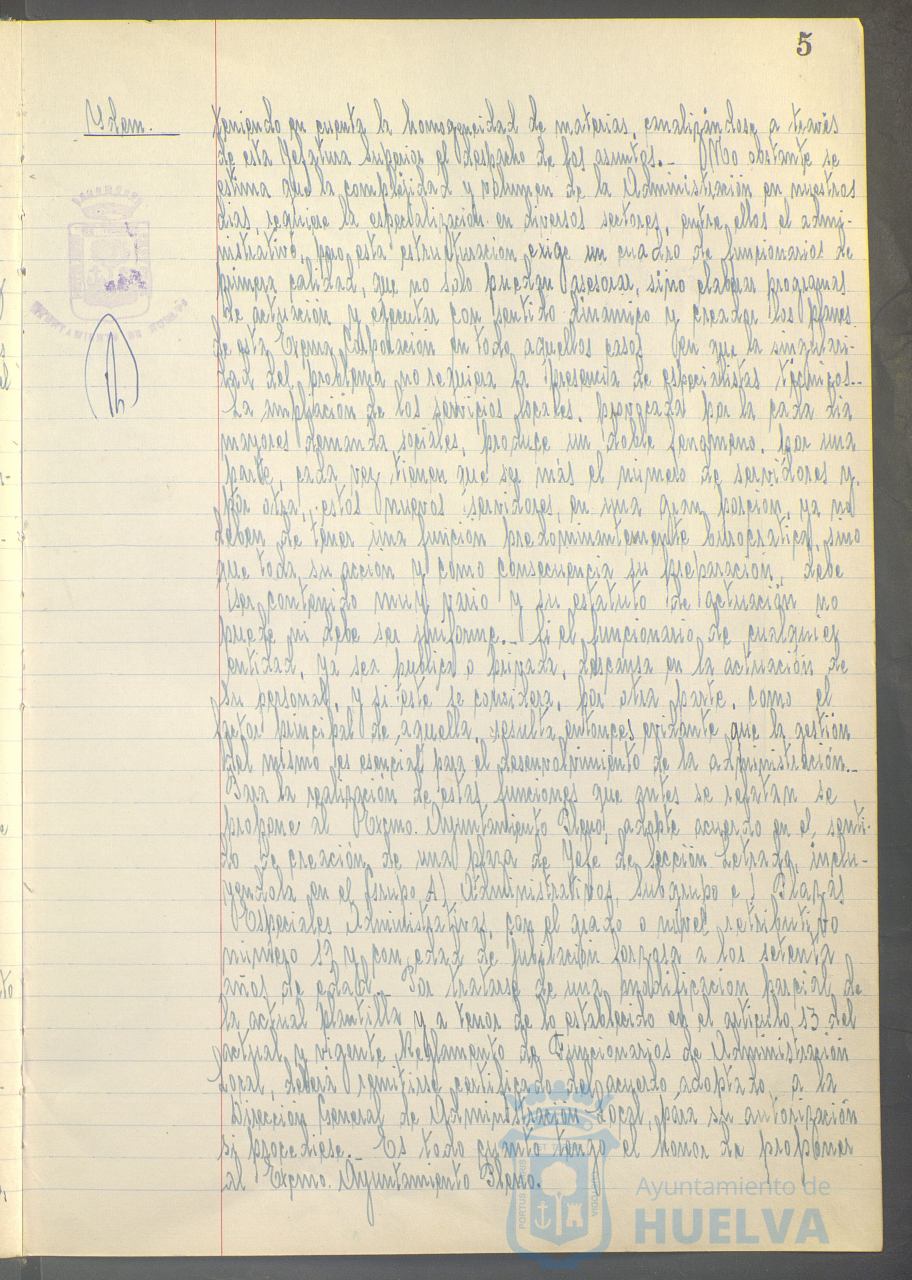 5
Idem.
teniendo en cuenta la homogeneidad de materias, canalizándose a través
de esta Jefatura Superior el despacho de los asuntos.- No obstante se
estima que la complejidad y volumen de la Administración en nuestros
dias requiere la especialización en diversos sectores, entre ellos el admi-
nistrativo, pero esta estructuración exige un cuadro de funcionarios de
primera calidad, que no solo puedan asesorar, sino elaborar programas
de actuación y ejecutar con sentido dinamico y creador los Planes
de esta Excma. Corporación en todo aquellos casos en que la singulari-
dad del problema no requiera la presencia de especialistas técnicos.-
La ampliación de los servicios locales, provocada por la cada dia
mayores demanda sociales, produce un doble fenomeno. Por una
parte, cada vez tienen que ser más el número de servidores y,
por otra, estos nuevos servidores, en una gran porción, ya no
deben de tener una función predominantemente burocratica, sino
que toda su acción y como consecuencia su preparación, debe
ser contenido muy vario y su estatuto de actuación no
puede ni debe ser uniforme.- Si el funcionario de cualquier
entidad, ya sea publica o privada, descansa en la actuación de
su personal, y si este se considera, por otra parte, como el
factor principal de aquella, resulta entonces evidente que la gestión
del mismo es esencial para el desenvolvimiento de la administración.-
Para la realización de estas funciones que antes se relatan se
propone al Excmo. Ayuntamiento Pleno, adopte acuerdo en el senti-
do de creación de una plaza de Jefe de Sección Letrado, inclu-
yendola en el Grupo A) Administrativos, Subgrupo c) Plazas
Especiales Administrativas, con el grado o nivel retributivo
numero 13 y con edad de jubilación forzosa a los setenta
años de edad. Por tratarse de una modificacion parcial de
la actual plantilla y a tenor de lo establecido en el articulo 13 del
actual y vigente Reglamento de Funcionarios de Administración
Local, deberá remitirse certificado del acuerdo adoptado, a la
Direccion General de Administración Local para su autorización
si procediese.- Es todo cuanto tengo el honor de proponer
al Excmo. Ayuntamiento Pleno.
Ayuntamiento de
HUELVA